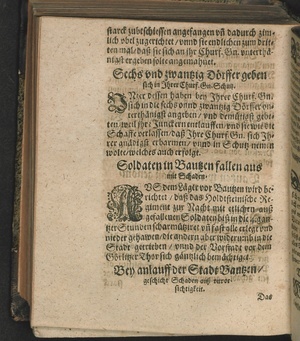 starck zubeschiessen angefangen vñ dadurch zim-
lich vbel zugerichtet / vnnd sie endlichen zum drit-
ten mal / daß sie sich an jhr Churf. Gn. vnterthä-
nigst ergeben solte angemahnet.
Sechs vnd zwantzig Dörffer geben
sich in Jhrer Churf. Gn. Schutz.
VNter dessen haben bey Jhrer Churf. Gn.
sich in die sechs vnnd zwantzig Dörffer vn-
terthänigst angeben / vnd demütigst gebe-
ten / weil jhre Junckern entlauffen / vnd sie wie die
Schaffe verlassen / daß Jhr Churf. Gn. sich Jh-
rer gnädigst erbarmen / vnnd in Schutz nemen
wolte / welches auch erfolgt.
Soldaten in Bautzen fallen aus
mit Schaden.
AVS dem Läger vor Bautzen wird be-
richtet / daß das Holdsteinische Re-
giment zur Nacht mit etlichen auß
gefallenen Soldaten biß in die
Stunden scharmützirt / vñ fast alle erlegt vnd
nieder gehawen / die andern aber widerumb in die
Stadt getrieben / vnnd der Vorstadt vor dem
Görlitzer Thor sich gäntzlich bemächtiget.
Bey anlauff der Stadt Bautzen /
geschicht Schaden auß vnvor
sichtigkeit.
Das